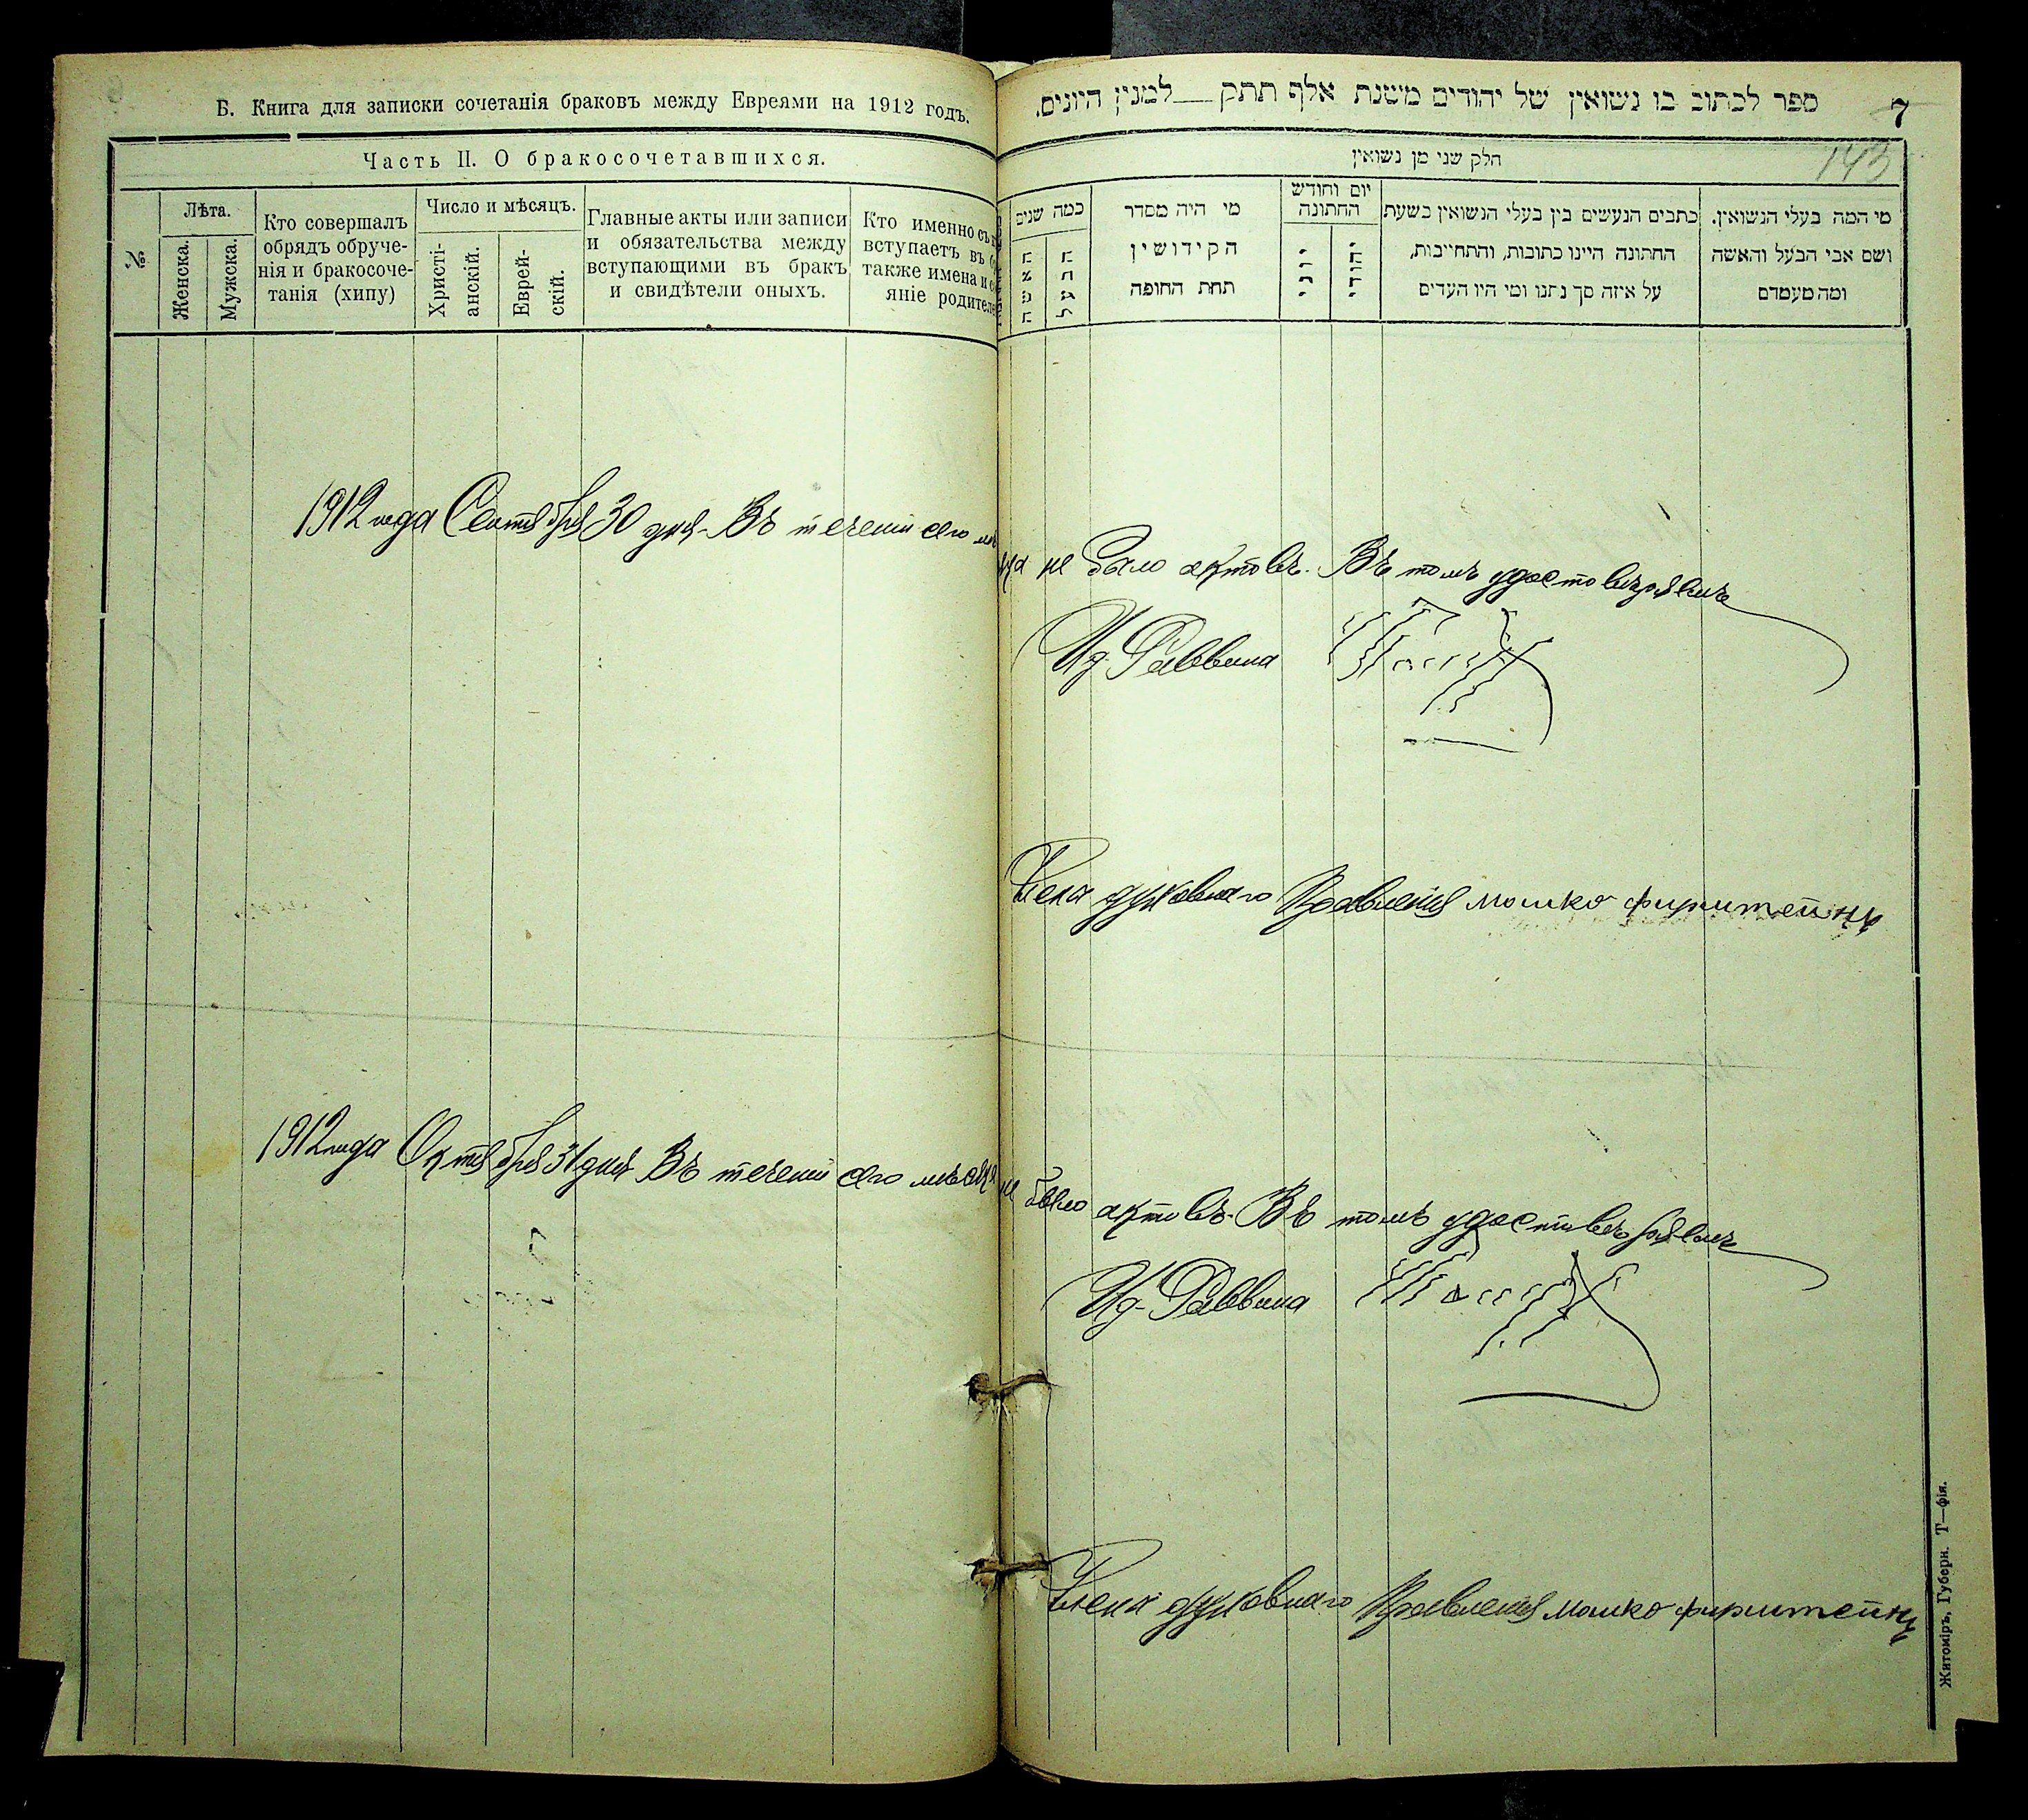 Б. Книга для записки сочетанія браковъ между Евреями на 1912 годъ.
Часть II. О бракосочетавшихся.
№
Лѣта.
Женска.
Мужска.
Кто совершалъ
обрядъ обруче-
нія и бракосоче-
танія (хипу)
Число и мѣсяцъ.
Христі-
анскій.
Еврей-
скій.
Главные акты или записи
и обязательства между
вступающими въ бракъ
и свидѣтели оныхъ.
Кто именно съ
вступаетъ въ
также имена и
яніе родителе
ספר לכתוב בו נשואין של יהודים משנת אלף תתק __ למנין היונים.
7
143
חלק שני מן נשואין
מי המה בעלי הנשואין.
ושם אבי הבעל והאשה
ומה מעמדם
כתבים הנעשים בין בעלי הנשואין בשעת
החתונה היינו כתובות, והתחייבות,
על איזה סך נתנו ומי היו העדים
יום וחודש
החתונה
יהודי
יוני
מי היה מסדר
הקידושין
תחת החופה
כמה שנים
הבעל
האשה
1912 года Сентября 30 дня. Въ теченіи сего мѣсяца не было актовъ. Въ томъ удостовѣряемъ
И д. Раввина
Членъ духовнаго Правленія мошко фирштейнъ
1912 года Октября 31 дня Въ теченіи сего мѣсяца не было актовъ. Въ томъ удостовѣряемъ
И д. Раввина
Членъ духовнаго Правленія мошко фирштейнъ
Житоміръ, Губерн. Т—фія.